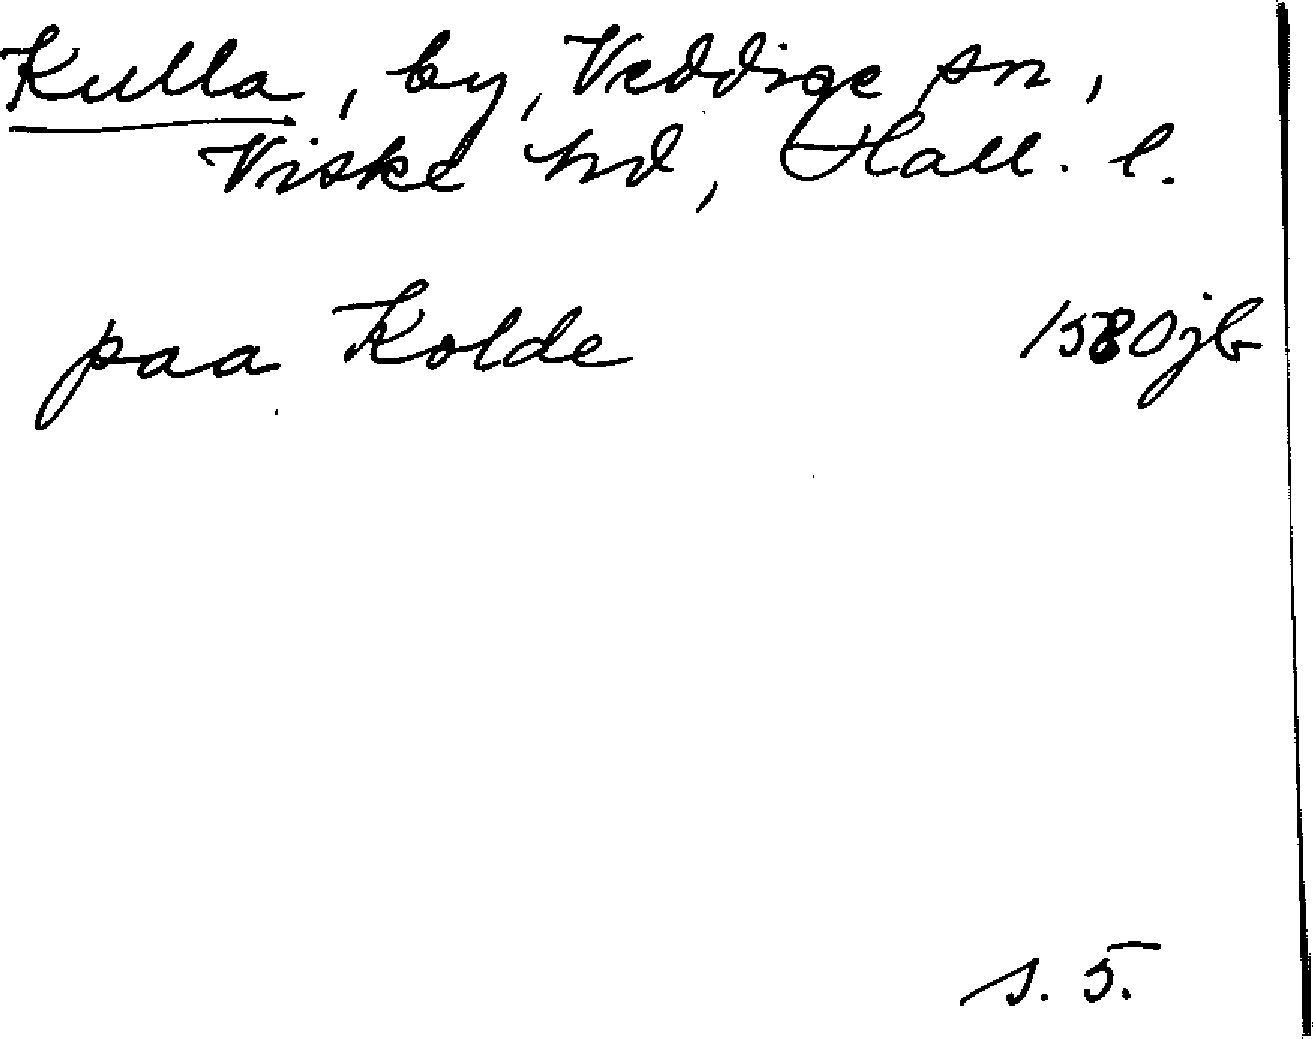 Kulla, by, Veddige sn,
Viske hd, Hall. l.
paa Kolde 1580 jb
s. 5.